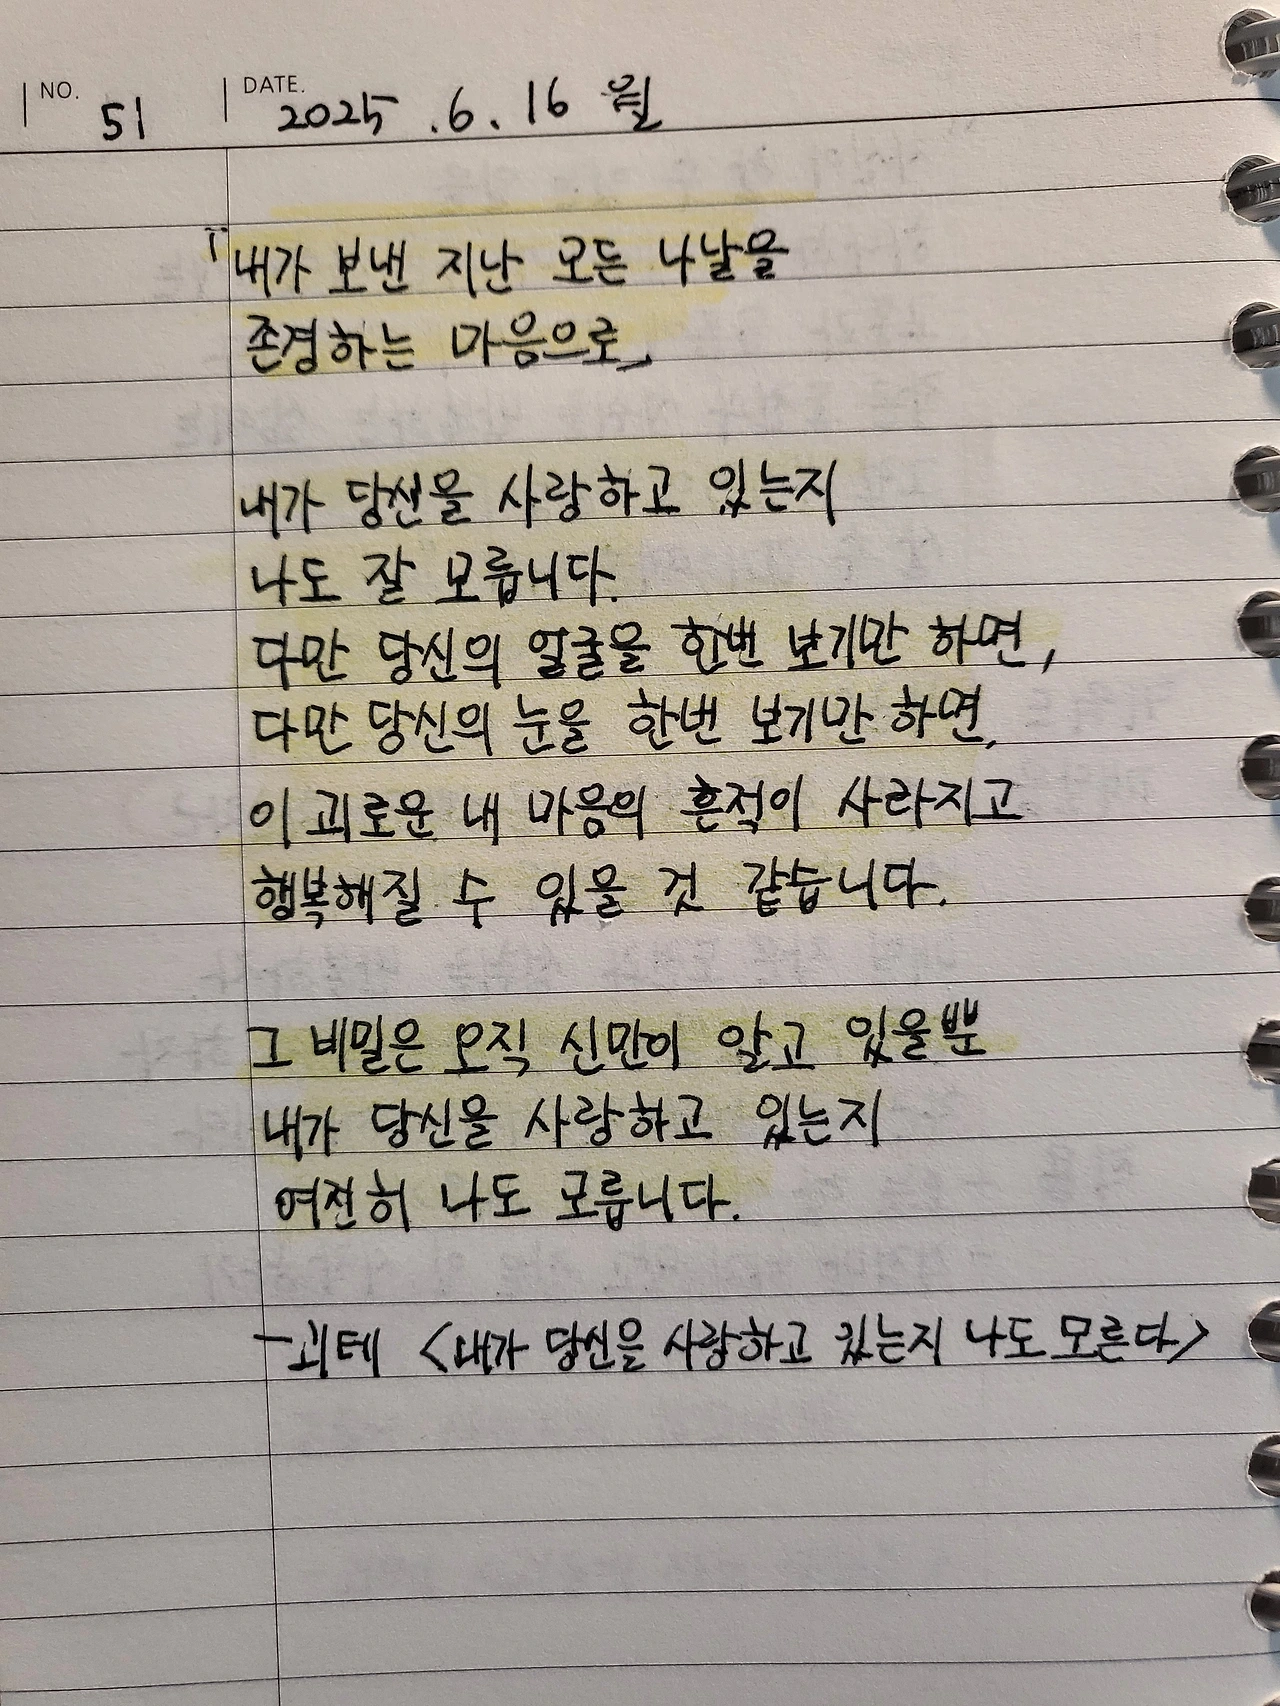 NO. 51 DATE. 2025.6.16 월
「내가 보낸 지난 모든 나날을
존경하는 마음으로」
내가 당신을 사랑하고 있는지
나도 잘 모릅니다.
다만 당신의 얼굴을 한번 보기만 하면,
다만 당신의 눈을 한번 보기만 하면,
이 괴로운 내 마음의 흔적이 사라지고
행복해질 수 있을 것 같습니다.
그 비밀은 오직 신만이 알고 있을뿐
내가 당신을 사랑하고 있는지
여전히 나도 모릅니다.
-괴테 <내가 당신을 사랑하고 있는지 나도 모른다>